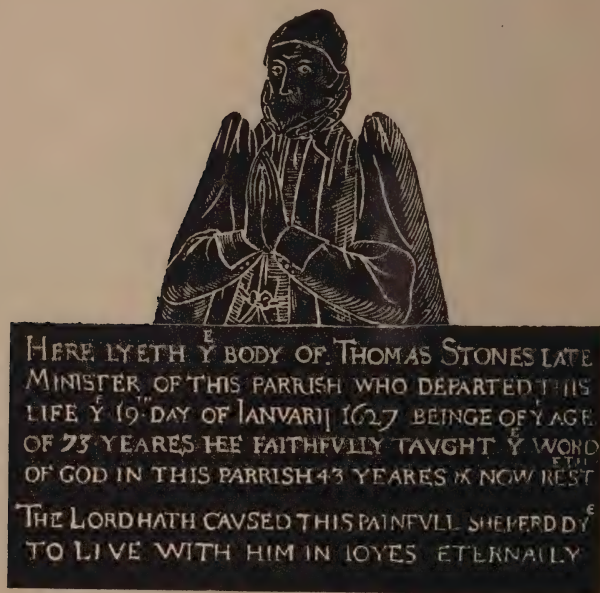 HERE LYETH Yᴱ BODY OF THOMAS STONES LATE
MINISTER OF THIS PARRISH WHO DEPARTED THIS
LIFE Yᴱ 19ᵀᴴ DAY OF IANVARIJ 1627 BEINGE OF Yᴱ AGE
OF 73 YEARES HEE FAITHFVLLY TAVGHT Yᴱ WORD
OF GOD IN THIS PARRISH 43 YEARES & NOW RESTᴱᵀᴴ
THE LORD HATH CAVSED THIS PAINFVLL SHEPERD DYᴱ
TO LIVE WITH HIM IN IOYES ETERNALLY